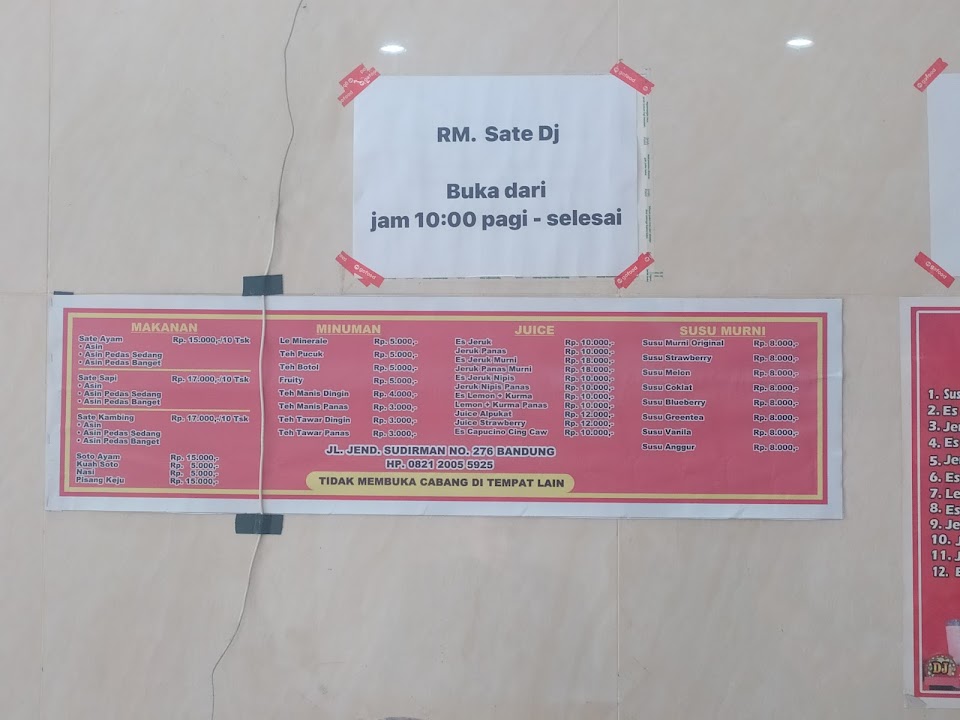 RM. Sate Dj
Buka dari
jam 10:00 pagi - selesai
gofood
gofood
gofood
gofood
gofood
MAKANAN
Sate Ayam Rp. 15.000,-/10 Tsk
• Asin
• Asin Pedas Sedang
• Asin Pedas Banget
Sate Sapi Rp. 17.000,-/10 Tsk
• Asin
• Asin Pedas Sedang
• Asin Pedas Banget
Sate Kambing Rp. 17.000,-/10 Tsk
• Asin
• Asin Pedas Sedang
• Asin Pedas Banget
Soto Ayam Rp. 15.000,-
Kuah Soto Rp. 5.000,-
Nasi Rp. 5.000,-
Pisang Keju Rp. 15.000,-
MINUMAN
Le Minerale Rp. 5.000,-
Teh Pucuk Rp. 5.000,-
Teh Botol Rp. 5.000,-
Fruity Rp. 5.000,-
Teh Manis Dingin Rp. 4.000,-
Teh Manis Panas Rp. 3.000,-
Teh Tawar Dingin Rp. 3.000,-
Teh Tawar Panas Rp. 3.000,-
JUICE
Es Jeruk Rp. 10.000,-
Jeruk Panas Rp. 10.000,-
Es Jeruk Murni Rp. 18.000,-
Jeruk Panas Murni Rp. 18.000,-
Es Jeruk Nipis Rp. 10.000,-
Jeruk Nipis Panas Rp. 10.000,-
Es Lemon + Kurma Rp. 10.000,-
Lemon + Kurma Panas Rp. 10.000,-
Juice Alpukat Rp. 12.000,-
Juice Strawberry Rp. 12.000,-
Es Capucino Cing Caw Rp. 10.000,-
SUSU MURNI
Susu Murni Original Rp. 8.000,-
Susu Strawberry Rp. 8.000,-
Susu Melon Rp. 8.000,-
Susu Coklat Rp. 8.000,-
Susu Blueberry Rp. 8.000,-
Susu Greentea Rp. 8.000,-
Susu Vanila Rp. 8.000,-
Susu Anggur Rp. 8.000,-
JL. JEND. SUDIRMAN NO. 276 BANDUNG
HP. 0821 2005 5925
TIDAK MEMBUKA CABANG DI TEMPAT LAIN
1. Sus
2. Es
3. Jer
4. Es
5. Je
6. Es
7. Le
8. Es
9. Je
10. J
11. J
12.
DJ